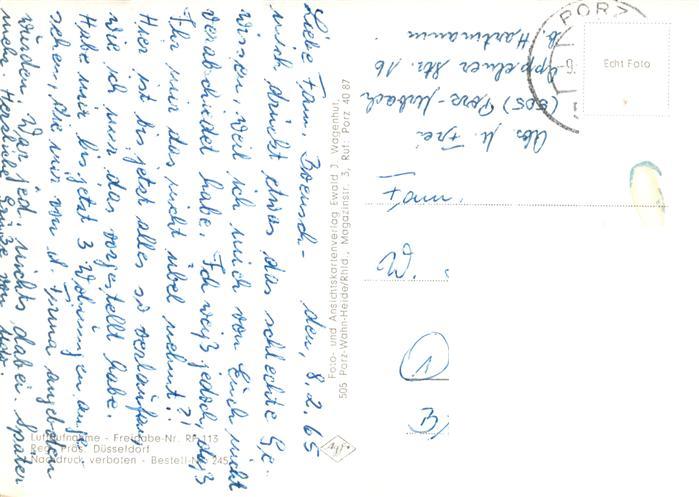 Liebe Fam. Boensch- den, 8.2.65
mich drückt etwas das schlechte Ge-
wissen, weil ich mich von Euch nicht
verabschiedet habe. Ich weiß jedoch, daß
Ihr mir das nicht übel nehmt?!
Hier ist bis jetzt alles so verlaufen,
wie ich mir das vorgestellt habe.
Habe mir bis jetzt 3 Wohnungen ange-
sehen, die mir von d. Firma angeboten
wurden. War jed. nichts dabei. Später
mehr. Herzliche Grüße von
Foto- und Ansichtskartenverlag Ewald J. Wagenhut,
505 Porz-Wahn-Heide/Rhld., Magazinstr. 3, Ruf: Porz 40 87
Luftaufnahme - Freigabe-Nr. RP 113
Reg. Präs. Düsseldorf
Nachdruck verboten - Bestell-Nr. 245
Abs. U. Frei
(505) Porz-Urbach
Oppelner Str. 16
b. Hartmann
PORZ
Echt Foto
Fam
1
B